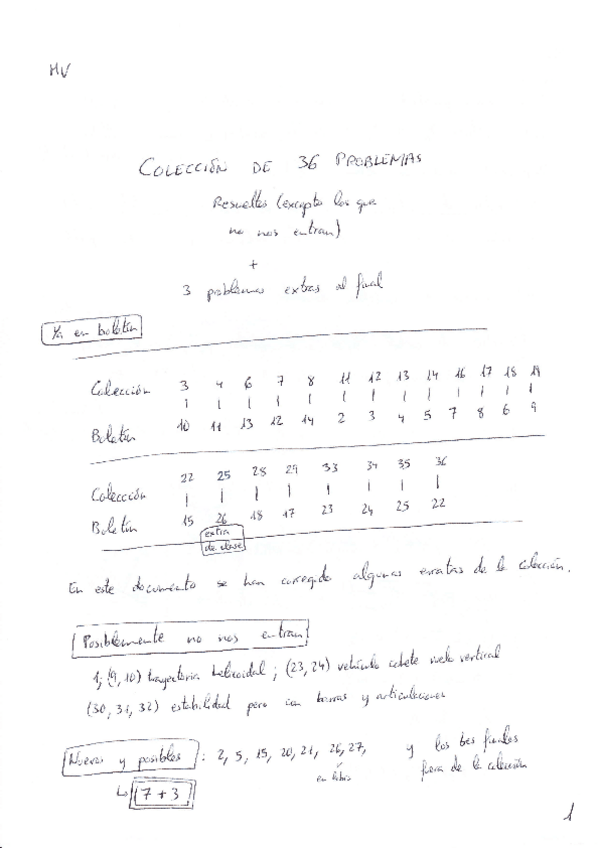 MV
COLECCIÓN DE 36 PROBLEMAS
Resueltos (excepto los que
no nos entran)
+
3 problemas extras al final
Ya en boletín
Colección 3 4 6 7 8 11 12 13 14 16 17 18 19
Boletín 10 11 13 12 14 2 3 4 5 7 8 6 9
Colección 22 25 28 29 33 34 35 36
Boletín 15 26 18 17 23 24 25 22
extra
de clase
En este documento se han corregido algunas erratas de la colección.
Posiblemente no nos entran
1; (9, 10) trayectoria helicoidal; (23, 24) vehículo cohete vuelo vertical
(30, 31, 32) estabilidad pero con barras y articulaciones
Nuevos y posibles: 2, 5, 15, 20, 21, 26, 27, y los tres finales
en libro fuera de la colección
7 + 3
1